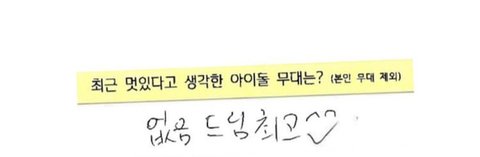 최근 멋있다고 생각한 아이돌 무대는? (본인 무대 제외)
없음 드림 최고♡